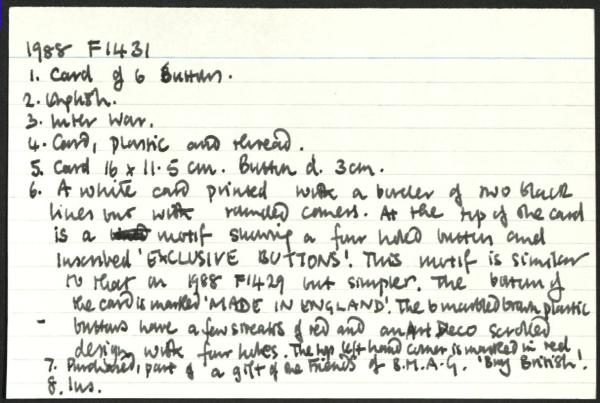 1988 F1431
1. Card of 6 Buttons.
2. English.
3. Inter War.
4. Card, plastic and thread.
5. Card 16 x 11.5 cm. Button d. 3cm.
6. A white card printed with a border of two black
lines but with rounded corners. At the top of the card
is a motif showing a four holed button and
inscribed 'EXCLUSIVE BUTTONS'. This motif is similar
to that on 1988 F1429 but simpler. The bottom of
the card is marked 'MADE IN ENGLAND'. The 6 marbled brown plastic
buttons have a few streaks of red and an Art Deco scrolled
design with four holes. The top left hand corner is marked in red
7. Purchased, part of a gift of the Friends of B.M.A.G. 'Buy British'.
8. Ins.